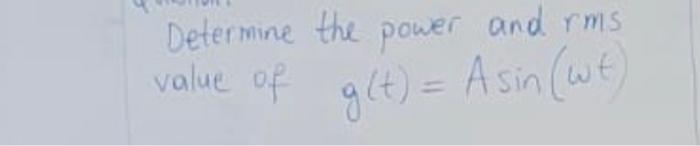 Determine the power and rms
value of g(t) = A sin(wt)